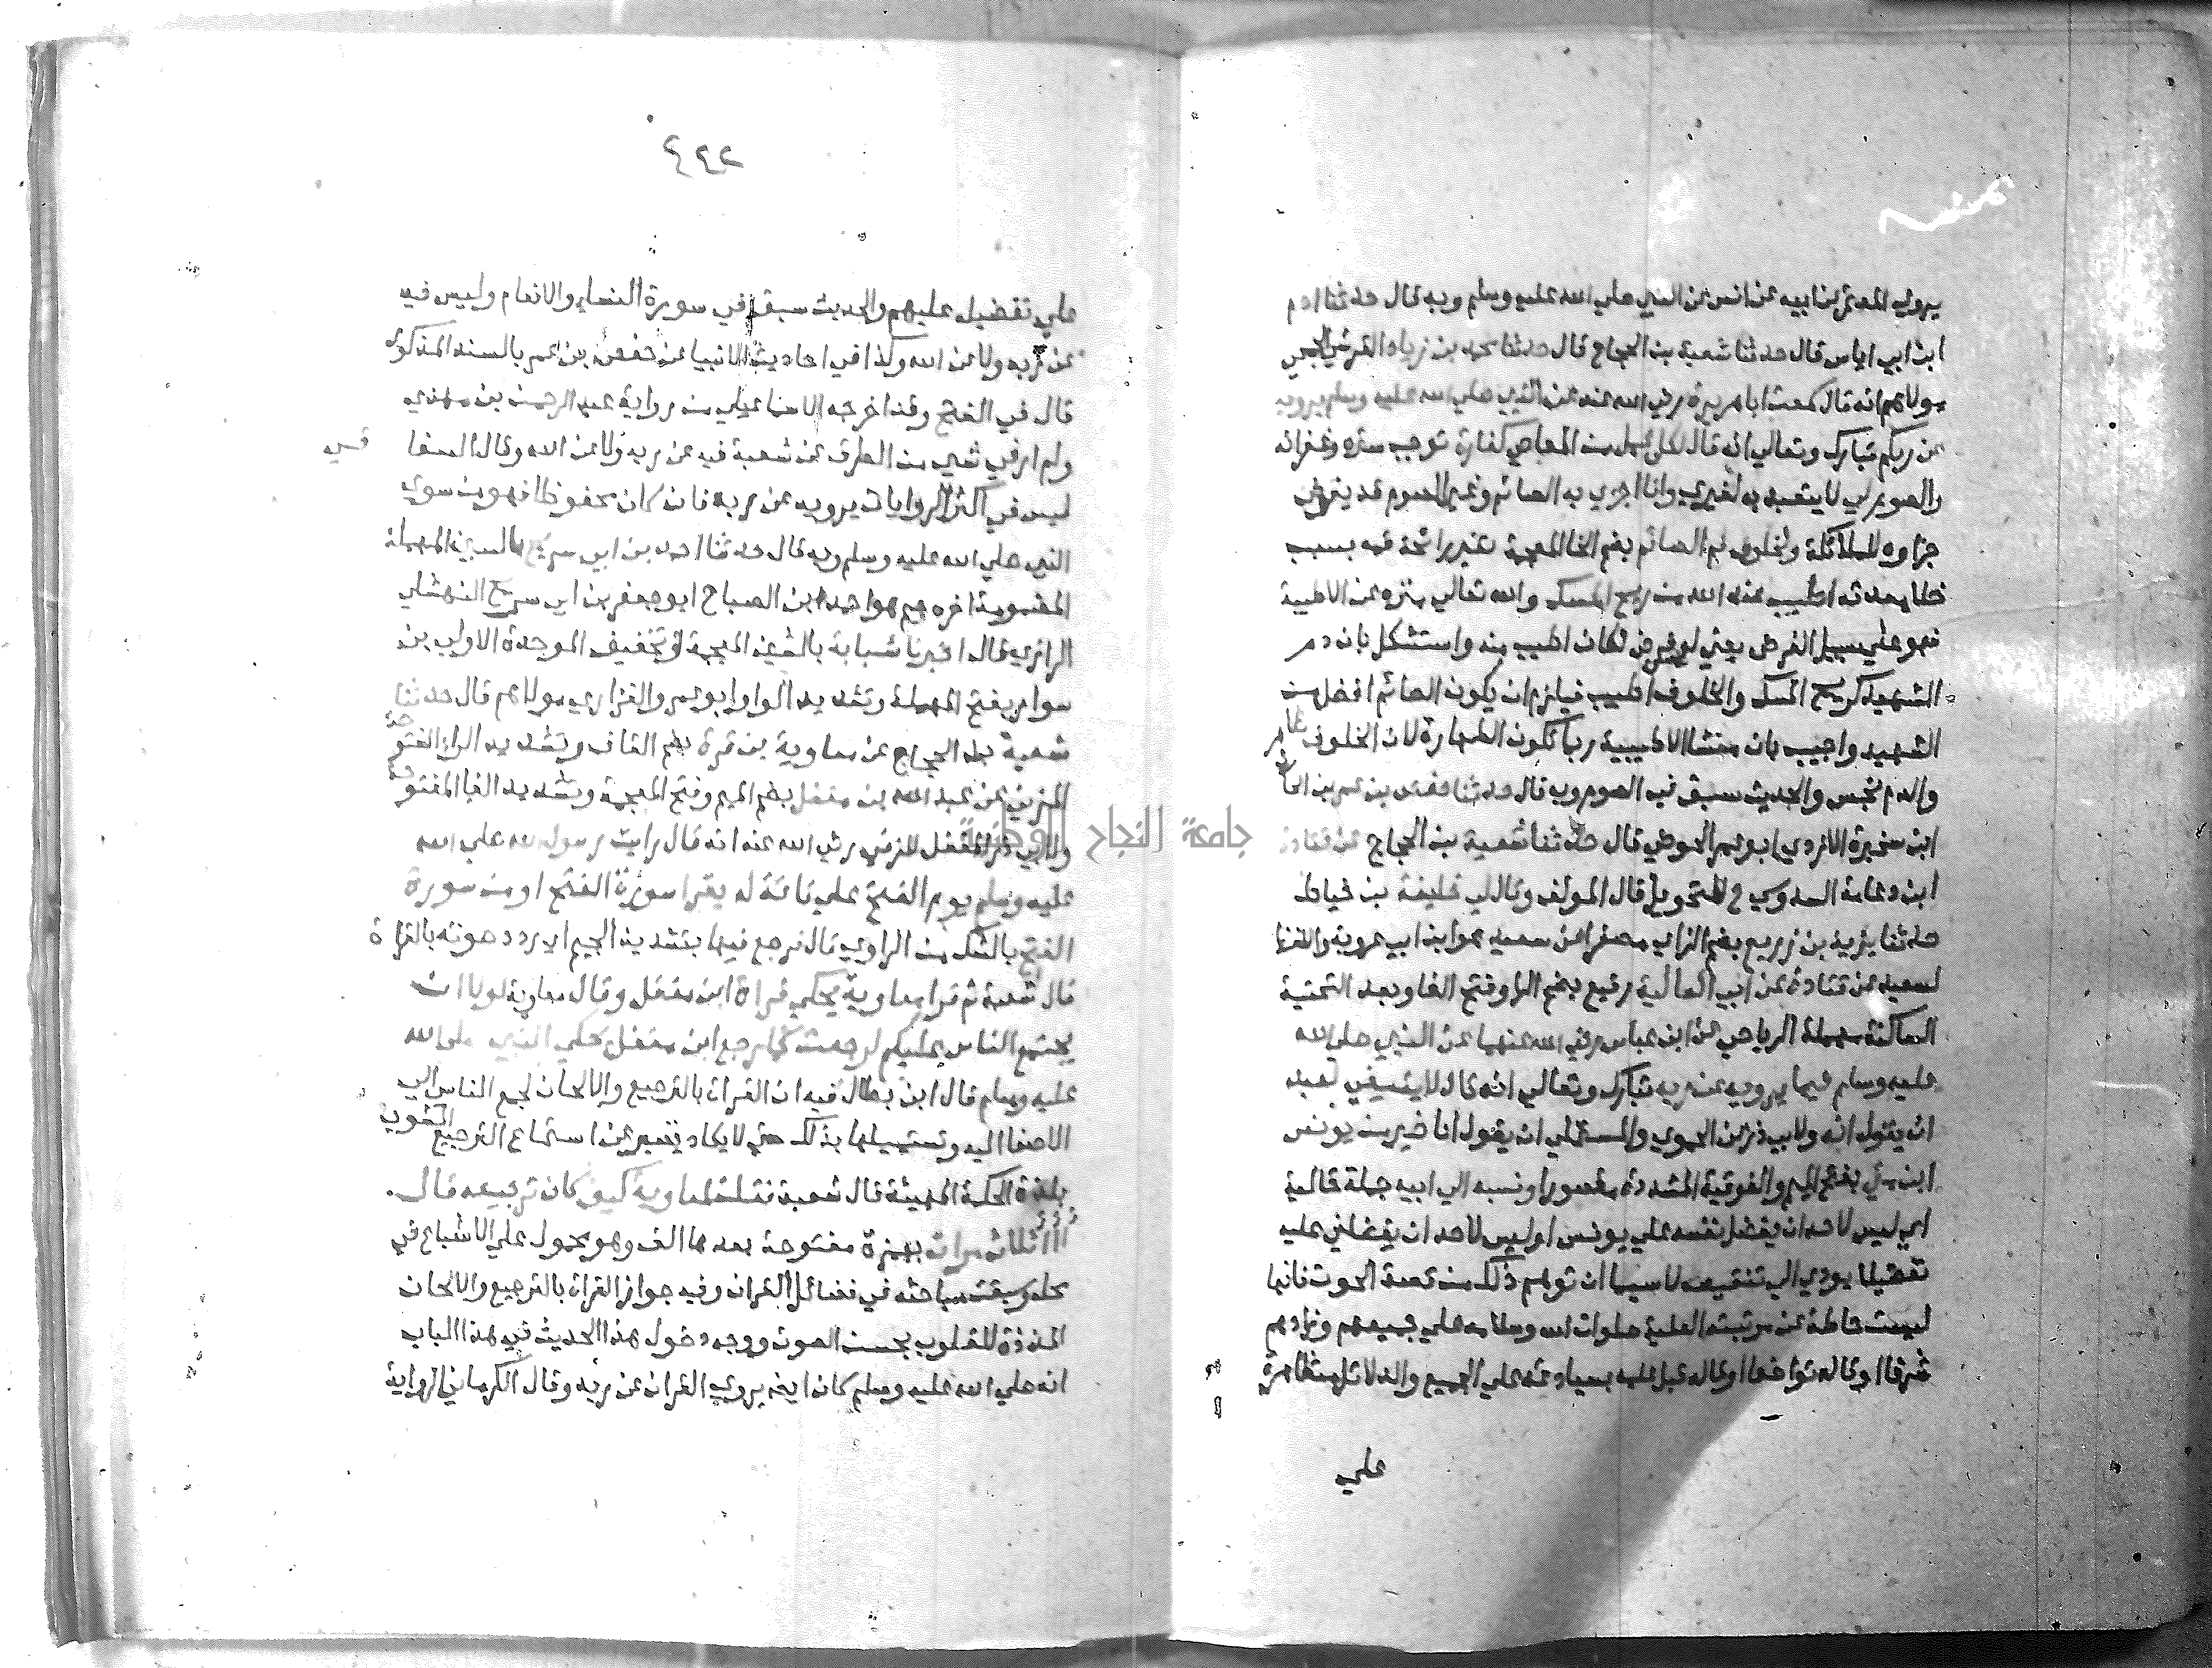 يرويه المعتمر عن ابيه عن انس عن النبي صلي الله عليه وسلم وبه قال حدثنا ادم
ابن ابي اياس قال حدثنا شعبة بن الحجاج قال حدثنا محمد بن زياد القرشي الجمحي
مولاهم انه قال سمعت ابا هريرة رضي الله عنه عن النبي صلي الله عليه وسلم يرويه
عن ربكم تبارك وتعالي انه قال لكل عمل من المعاصي كفارة توجب ستره وغفرانه
والصوم لي لا يتعبد به لغيري وانا اجزي به الصائم وغير الصوم قد يفوض
جزاوه للملائكة ولخلوف فم الصائم بضم الخا المعجمة تغير رائحة فمه بسبب
خلا معدته اطيب عند الله من ريح المسك والله تعالي منزه عن الاطيبية
فهو علي سبيل الفرض يعني لو فرض لكان اطيب منه واستشكل بان دم
الشهيد كريح المسك والخلوف اطيب فيلزم ان يكون الصائم افضل من
الشهيد واجيب بان منشا الاطيبية ربما تكون الطهارة لان الخلوف طاهر
والدم نجس والحديث سبق في الصوم وبه قال حدثنا حفص بن عمر بن الحارث
ابن سخبرة الازدي ابو عمر الحوضي قال حدثنا شعبة بن الحجاج عن قتادة
ابن دعامة السدوسي ح للتحويل قال المولف وقال لي خليفة بن خياط
حدثنا يزيد بن زريع بضم الزاي مصغرا عن سعيد هو ابن ابي عروبة واللفظ
لسعيد عن قتادة عن ابي العالية رفيع بضم الرا وفتح الفا وبعد التحتية
الساكنة مهملة الرياحي عن ابن عباس رضي الله عنهما عن النبي صلي الله
عليه وسلم فيما يرويه عن ربه تبارك وتعالي انه قال لا ينبغي لعبد
ان يقول انه ولابي ذر عن الحموي والمستملي ان يقول انا خير من يونس
ابن متي بفتح الميم والفوقية المشددة مقصورا ونسبه الي ابيه جملة حالية
اي ليس لاحد ان يفضل نفسه علي يونس او ليس لاحد ان يفضلني عليه
تفضيلا يودي الي تنقيصه لا سيما ان توهم ذلك من قصة الحوت فانها
ليست حاطة عن مرتبته العلية صلوات الله وسلامه علي جميعهم وزادهم
شرفا او قاله تواضعا او قاله قبل علمه بسيادته علي الجميع والدلائل متظاهرة
علي
٤٢٢
علي تفضيله عليهم والحديث سبق في سورة النساء والانعام وليس فيه
عن ربه ولا عن الله وكذا في احاديث الانبيا عن حفص بن عمر بالسند المذكور
قال في الفتح وقد اخرجه الاسماعيلي من رواية عبد الرحمن بن مهدي
ولم ار في شي من الطرق عن شعبة فيه عن ربه ولا عن الله وقال السفا قسي
ليس في اكثر الروايات يرويه عن ربه فان كان محفوظا فهو من سوي
النبي صلي الله عليه وسلم وبه قال حدثنا احمد بن ابي سريج بالسين المهملة
المضمومة اخره جيم هو احمد ابن الصباح ابو جعفر بن ابي سريج النهشلي
الرازي قال اخبرنا شبابة بالشين المعجمة وتخفيف الموحدة الاولي بن
سوار بفتح المهملة وتشديد الواو ابو عمرو الفزاري مولاهم قال حدثنا
شعبة بن الحجاج عن معاوية بن قرة بضم القاف وتشديد الرا المفتوحة
المزني عن عبد الله بن مغفل بضم الميم وفتح المعجمة وتشديد الفا المفتوحة
ولابي ذر المغفل المزني رضي الله عنه انه قال رايت رسول الله صلي الله
عليه وسلم يوم الفتح علي ناقة له يقرا سورة الفتح او من سورة
الفتح بالشك من الراوي قال فرجع فيها بتشديد الجيم اي ردد صوته بالقراة
قال شعبة ثم قرا معاوية يحكي قراة ابن مغفل وقال معاوية لولا ان
يجتمع الناس عليكم لرجعت كما رجع ابن مغفل يحكي النبي صلي الله
عليه وسلم قال ابن بطال فيه ان القران بالترجيع والالحان لجمع الناس الي
الاصغا اليه وتستميلها بذلك حتي لا يكاد يصبر عن استماع الترجيع المشوب
بلذة الحكمة المهيئة قال شعبة فقلت لمعاوية كيف كان ترجيعه قال
ااا ثلاث مرات بهمزة مفتوحة بعدها الف وهو محمول علي الاشباع في
محله وسبقت مباحثه في فضائل القران وفيه جواز القران بالترجيع والالحان
الملذذة للقلوب بحسن الصوت ووجه دخول هذا الحديث في هذا الباب
انه صلي الله عليه وسلم كان ايضا يروي القران عن ربه وقال الكرماني الرواية
جامعة النجاح الوطنية